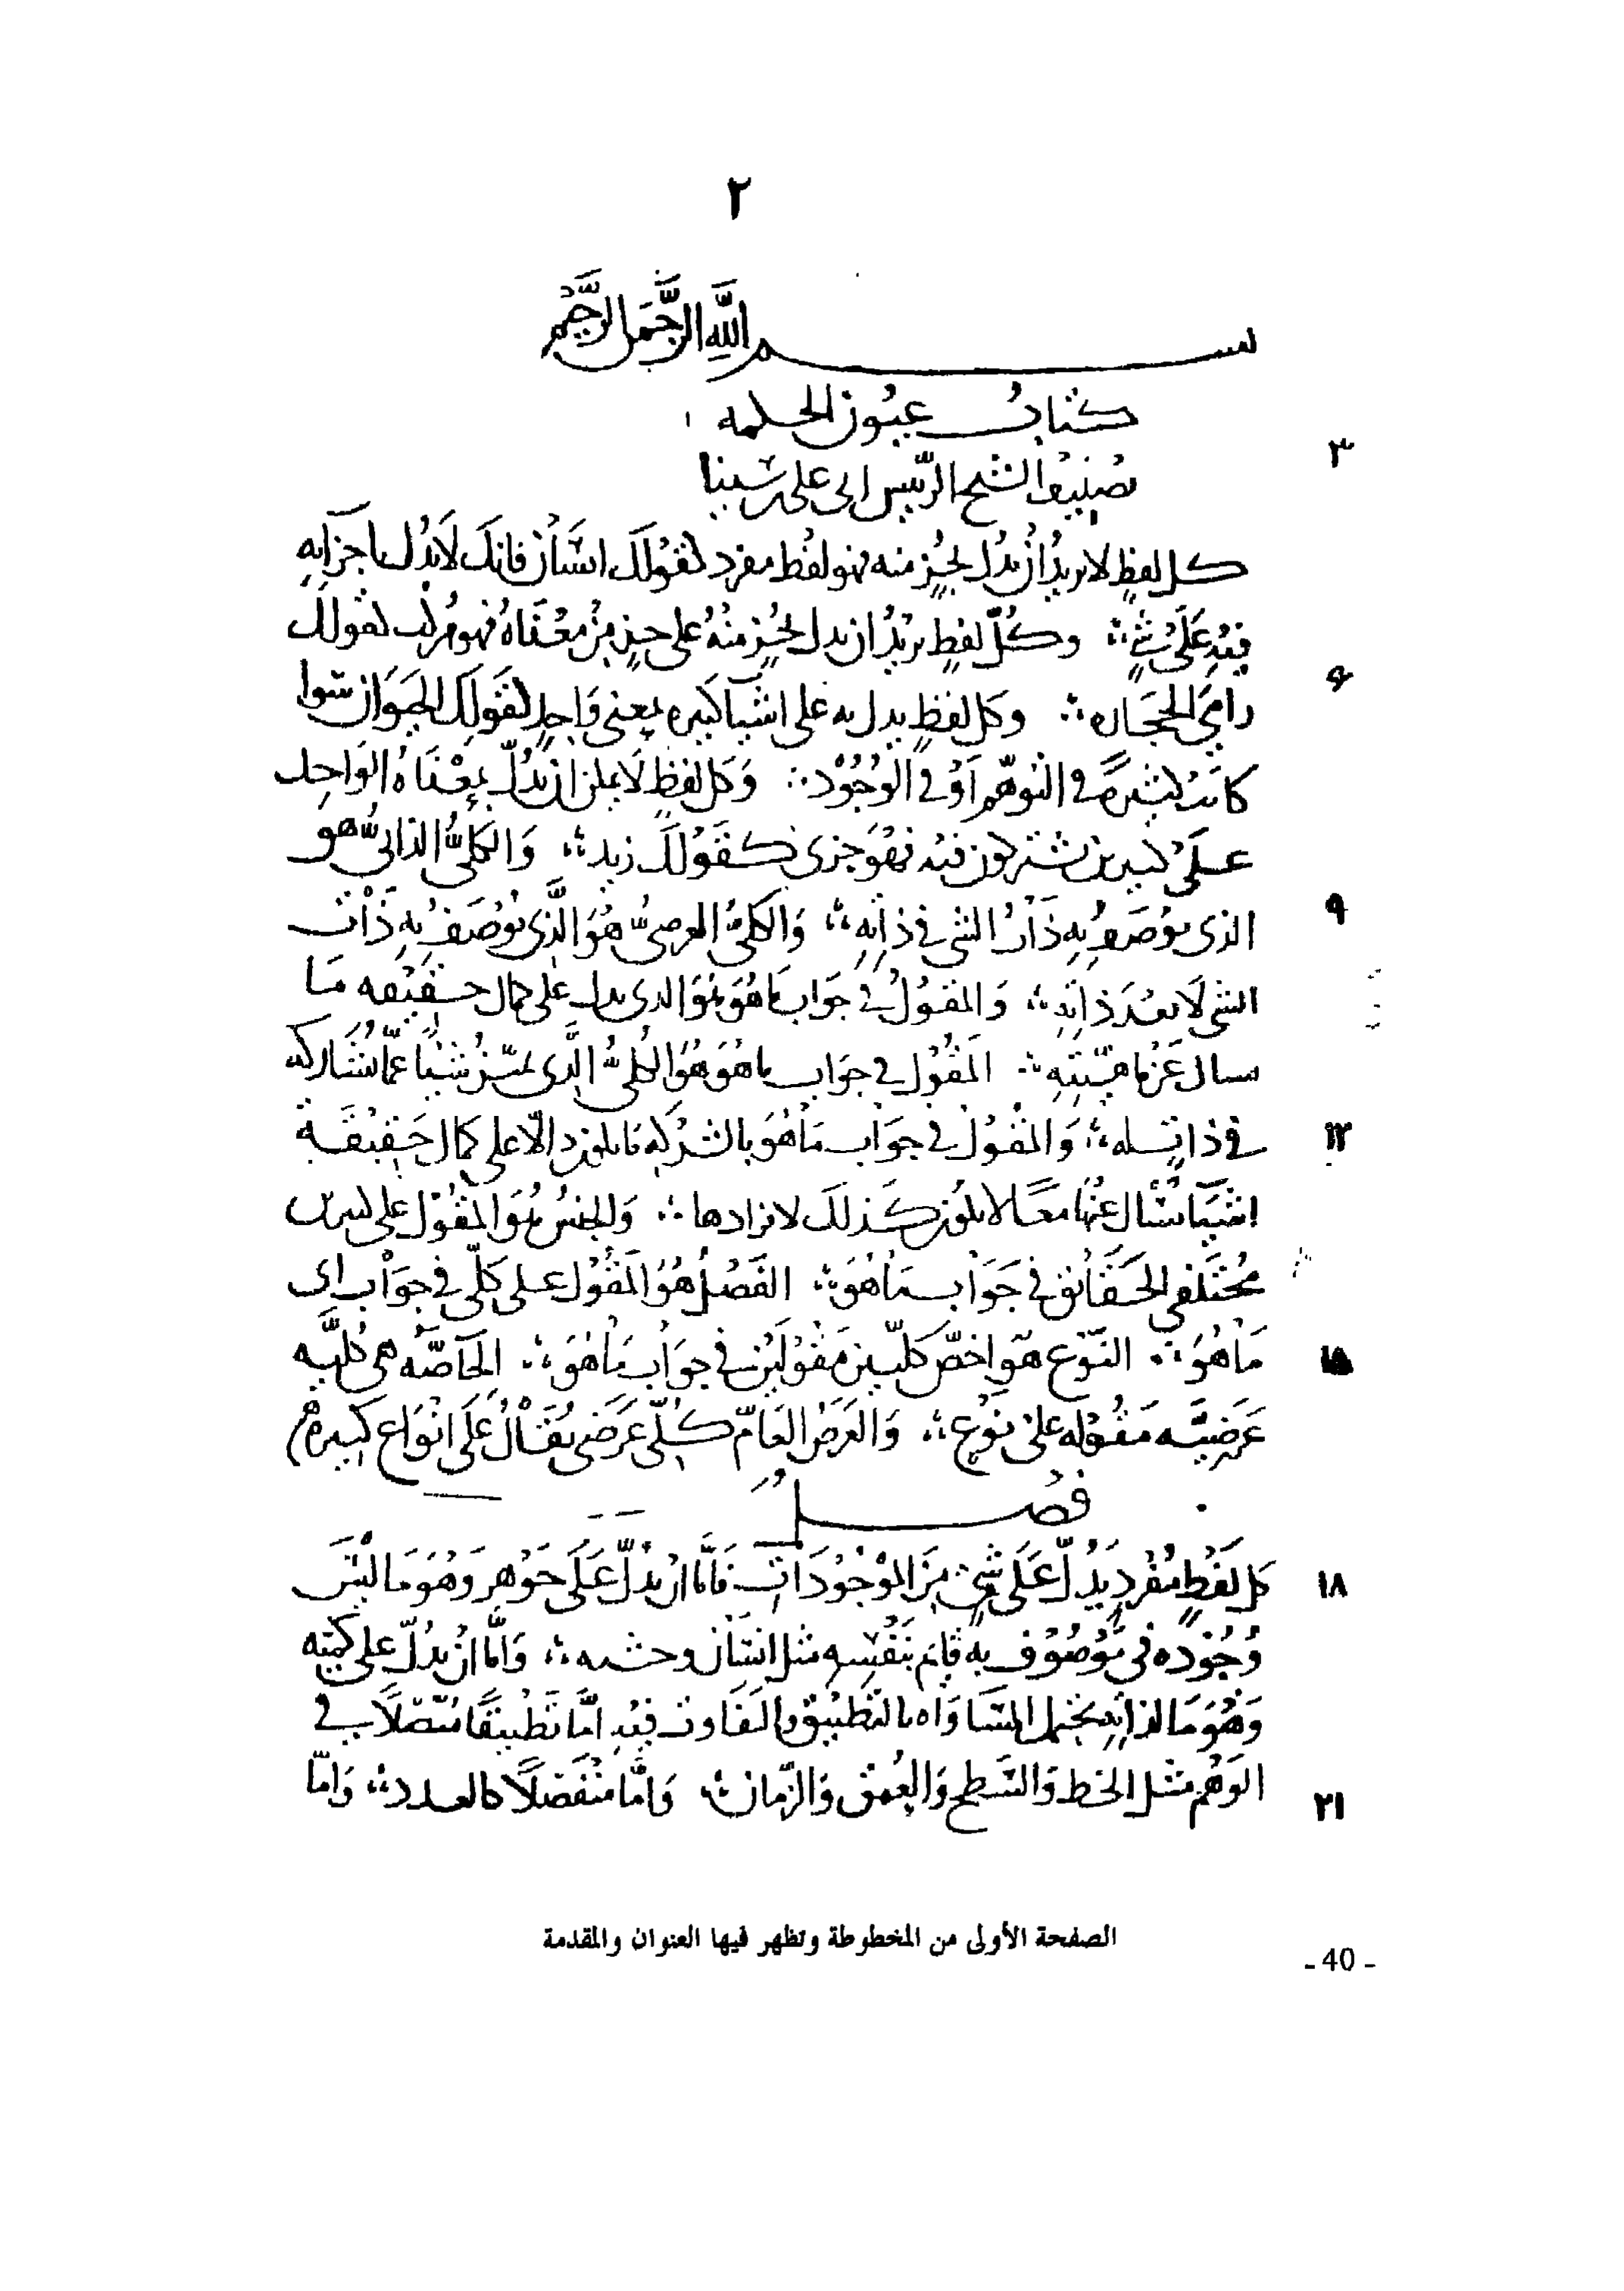 ٢
بسم الله الرحمن الرحيم
كتاب عيون الحكمه
٣
تصنيف الشيخ الرئيس ابى على بن سينا
كل لفظٍ لا تريدُ ان تدل بجُزءٍ منه فهو لفظ مفرد كقولك انسان فانك لا تدُل باجزايه
فيه على شيٍ ؞ وكُلّ لفظٍ تريدُ ان تدل بجُزءٍ منهُ على جزءٍ من معناهُ فهو مركب كقولك
٦
رامي الحجاره ؞ وكل لفظٍ يدل به على اشيا كثيره بمعنى واحدٍ كقولك الحيوان سوا
كانت كثيرةً في التوهّم اوْ في الوُجُوْد ؞ وكل لفظٍ لا يمكن ان يدُلّ بمعْناهُ الواحد
على كثيرين يشتركون فيه فهوَ جزى كقوْلك زيد ؞ والكلىُّ الذاتىُّ هو
٩
الذى يوُصَفُ بهِ ذاتُ الشى في ذاتهِ ؞ والكلىُّ العرضىُّ هُوَ الَّذى يُوْصَفُ بهِ ذاْت
الشى لا بعد ذاتهِ ؞ والمقوُلُ في جواب ما هُوَ هُوَ الذى يدل على كمال حقيقه ما
يسال عَنْ ماهيّتهِ ؞ المقُوْل في جواب ما هُوَ هُوَ الكُلىُّ الَّذى يميّزُ شيْئًا عمّا يُشاركه
١٢
في ذاتٍ له ؞ والمقُوْل في جواب ما هُوَ بالشركه ما يكون دالّا على كمال حَقيْقة
اشيا يُسْال عَنْها معًا لا يكون كذلك لافرادها ؞ والجنسُ هُوَ المقُوْل على كثيرين
مُختلفى الحقائق في جَوَاب ما هُوَ ؞ الفصْلُ هُوَ المقُوْل على كلّى في جواْب اى
١٥
ما هُوَ ؞ النّوْع هوَ اخصّ كلّيين مقوُليْن في جواب ما هُوَ ؞ الخاصَّه هى كُليَّه
عَرَضيَّه مقُوْله على نَوْع ؞ والعرَضُ العَامّ كُلّى عَرَضى يُقالُ على انوَاع كثيره
فصل
١٨
كل لفْظٍ مُفْردٍ يَدُلّ على شىٍ مِنَ الموْجُوْدَات فامّا ان يدُلّ على جَوْهر وهُوَ ما ليْسَ
وُجُوْده فى موْصُوْف بهِ قايم بنَفْسِهِ مثل انسَان وخشبه ؞ وامَّا ان يدُلّ على كميّه
وهُوَ ما لذاتِهِ يحتمل المسَاوَاه بالتطبيق والتفاوت فيْهِ امَّا تطْبيْقًا متّصلًا في
الوَهْم مثل الخط والسَّطح والعُمق والزّمان ؞ وامَّا منْفصَلًا كالعدد ؞ وامّا
٢١
الصفحة الأولى من المخطوطة وتظهر فيها العنوان والمقدمة
- 40 -